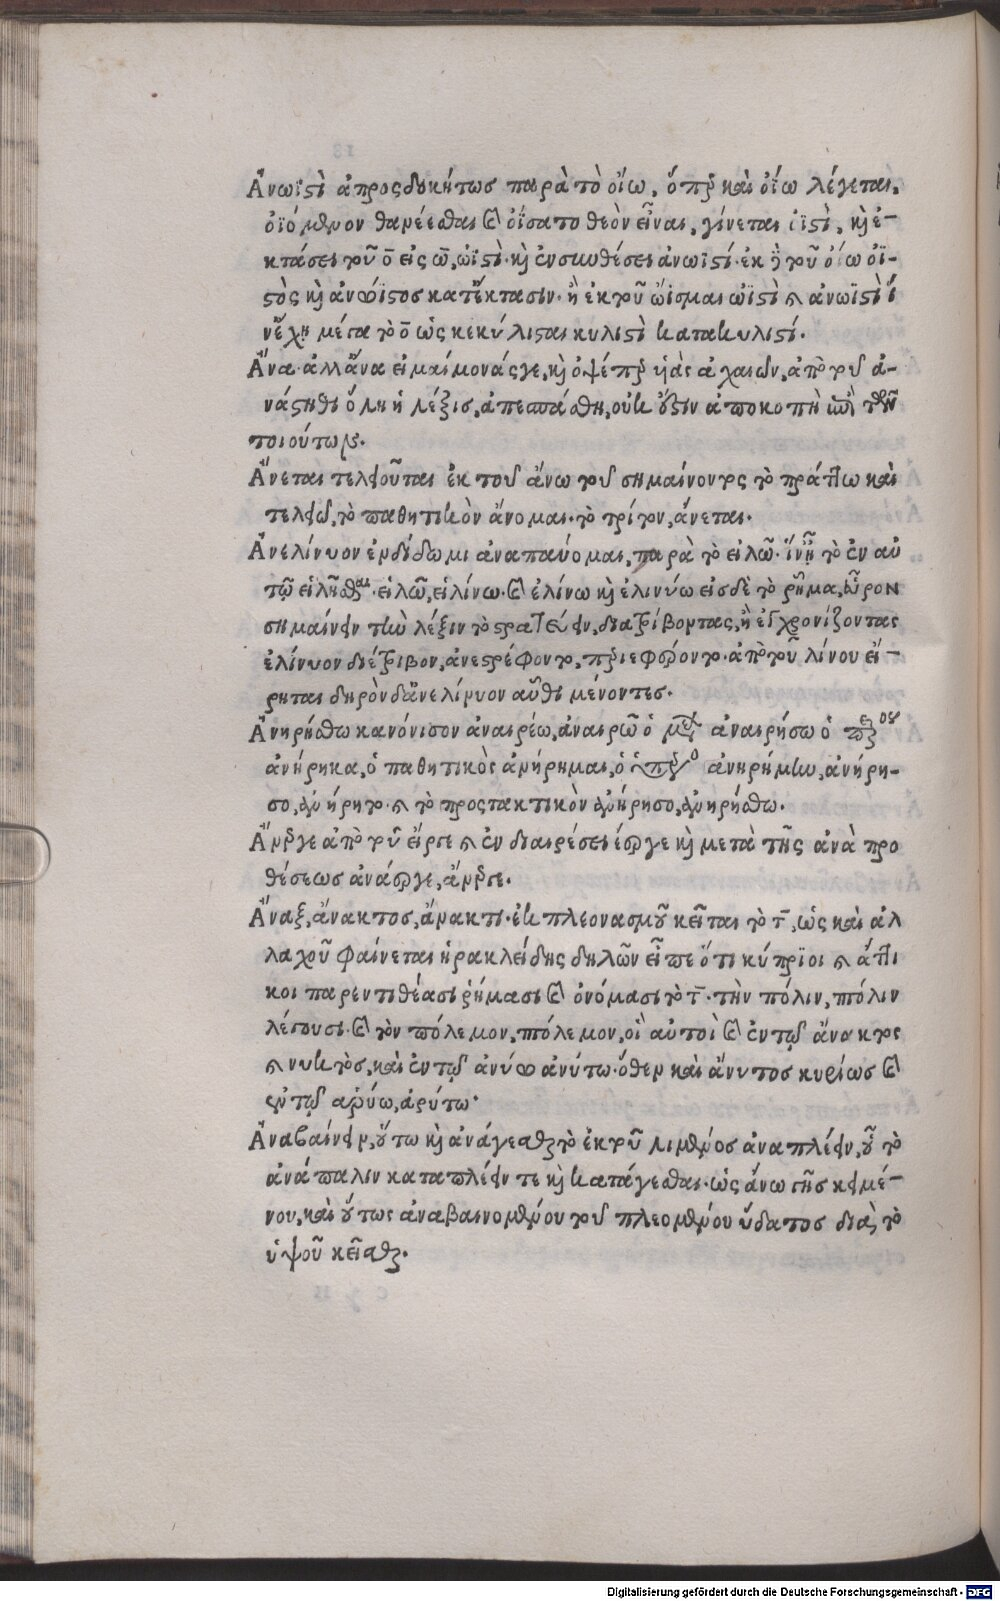 Ἀνωϊστὶ ἀπροςδοκήτως παρὰ τὸ οἴω, ὅπερ καὶ ὀΐω λέγεται,
ὀϊόμενον θαρέεσθαι καὶ ὀΐσατο θεὸν εἶναι, γίνεται ὀϊστὶ, καὶ ἐ-
κτάσει τοῦ ο̄ εἰς ω̄, ὠϊστὶ· καὶ ἐν συνθέσει ἀνωϊστί· ἐκ δὲ τοῦ ὀΐω ὀϊ-
στὸς καὶ ἀνώϊστος κατ' ἔκτασιν· ἢ ἐκ τοῦ ὤϊσμαι ὠϊστὶ καὶ ἀνωϊστὶ ἵ
ν' ἔχῃ μέγα τὸ ο̄ ὡς κεκύλισται κυλιστὶ κατακυλιστί.
Ἄνα· ἀλλ' ἄνα εἰ μαίμονάς γε, καὶ ὀψέ περ υἷας ἀχαιῶν, ἀπὸ τοῦ ἀ-
νάστηθι ὅλη ἡ λέξις, ἀπεσπάσθη, οὐκ οὖσιν ἀποκοπὴ ἐπὶ τῶν
τοιούτων.
Ἄνεται τελειοῦται ἐκ τοῦ ἄνω τοῦ σημαίνοντος τὸ πράττω καὶ
τελειῶ, τὸ παθητικὸν ἄνομαι· τὸ τρίτον, ἄνεται.
Ἀνελίνυον ἐνδίδωμι ἀναπαύομαι, παρὰ τὸ εἰλῶ· ἵν' ᾖ τὸ ἐν αὐ
τῷ εἰλῆσθαι· εἰλῶ, εἰλίνω· καὶ ἐλίνω καὶ ἐλιννύω εἰσδὲ τὸ ῥῆμα, εὗρον
σημαίνειν τὴν λέξιν τὸ στρατεύειν, διατρίβοντας, ἢ ἐγχρονίζοντας
ἐλίνυον διέτριβον, ἀνεστρέφοντο, περιεφέροντο· ἀπὸ τοῦ λίνου εἴ-
ρηται δηρὸν δ' ἀνελίνυον αὖθι μένοντες.
Ἀνηρήσθω κανόνισον ἀναιρέω, ἀναιρῶ ὁ μέλλων ἀναιρήσω ὁ
ἀνήρηκα, ὁ παθητικὸς ἀνήρημαι, ὁ ὑπερ ἀνηρήμην, ἀνήρη-
σο, ἀνήρητο· καὶ τὸ προςτακτικὸν ἀνήρησο, ἀνηρήσθω.
ἀπὸ τοῦ εἶργε καὶ ἐν διαιρέσει ἔεργε καὶ μετὰ τῆς ἀνὰ προ
θέσεως ἀνάεργε,
Ἄναξ, ἄνακτος, ἄνακτι· ἐκ πλεονασμοῦ κεῖται τὸ τ̄, ὡς καὶ ἀλ
λαχοῦ φαίνεται ἡρακλείδης δηλῶν εἶπε ὅτι κύπριοι καὶ ἀττι
κοι παρεντιθέασι ῥήμασι καὶ ὀνόμασι τὸ τ̄· τὴν πόλιν, πτόλιν
λέγουσι· καὶ τὸν πόλεμον, πτόλεμον, οἱ αὐτοὶ καὶ ἐν τῷ ἄνακτος
καὶ νυκτὸς, καὶ ἐν τῷ ἀνύω ἀνύτω· ὅθεν καὶ ἄνυτος κυρίως καὶ
ἐν τῷ ἀρύω, ἀρύτω·
Ἀναβαίνειν, οὕτω καὶ ἀνάγεσθαι τὸ ἐκ τοῦ λιμένος ἀναπλέειν, οὗ τὸ
ἀνάπαλιν καταπλέειν τε καὶ κατάγεσθαι· ὡς ἄνω τῆς κειμέ-
νου, καὶ οὕτως ἀναβαινομένου τοῦ πλεομένου ὕδατος διὰ τὸ
ὑψοῦ κεῖσθαι.
Digitalisierung gefördert durch die Deutsche Forschungsgemeinschaft - DFG